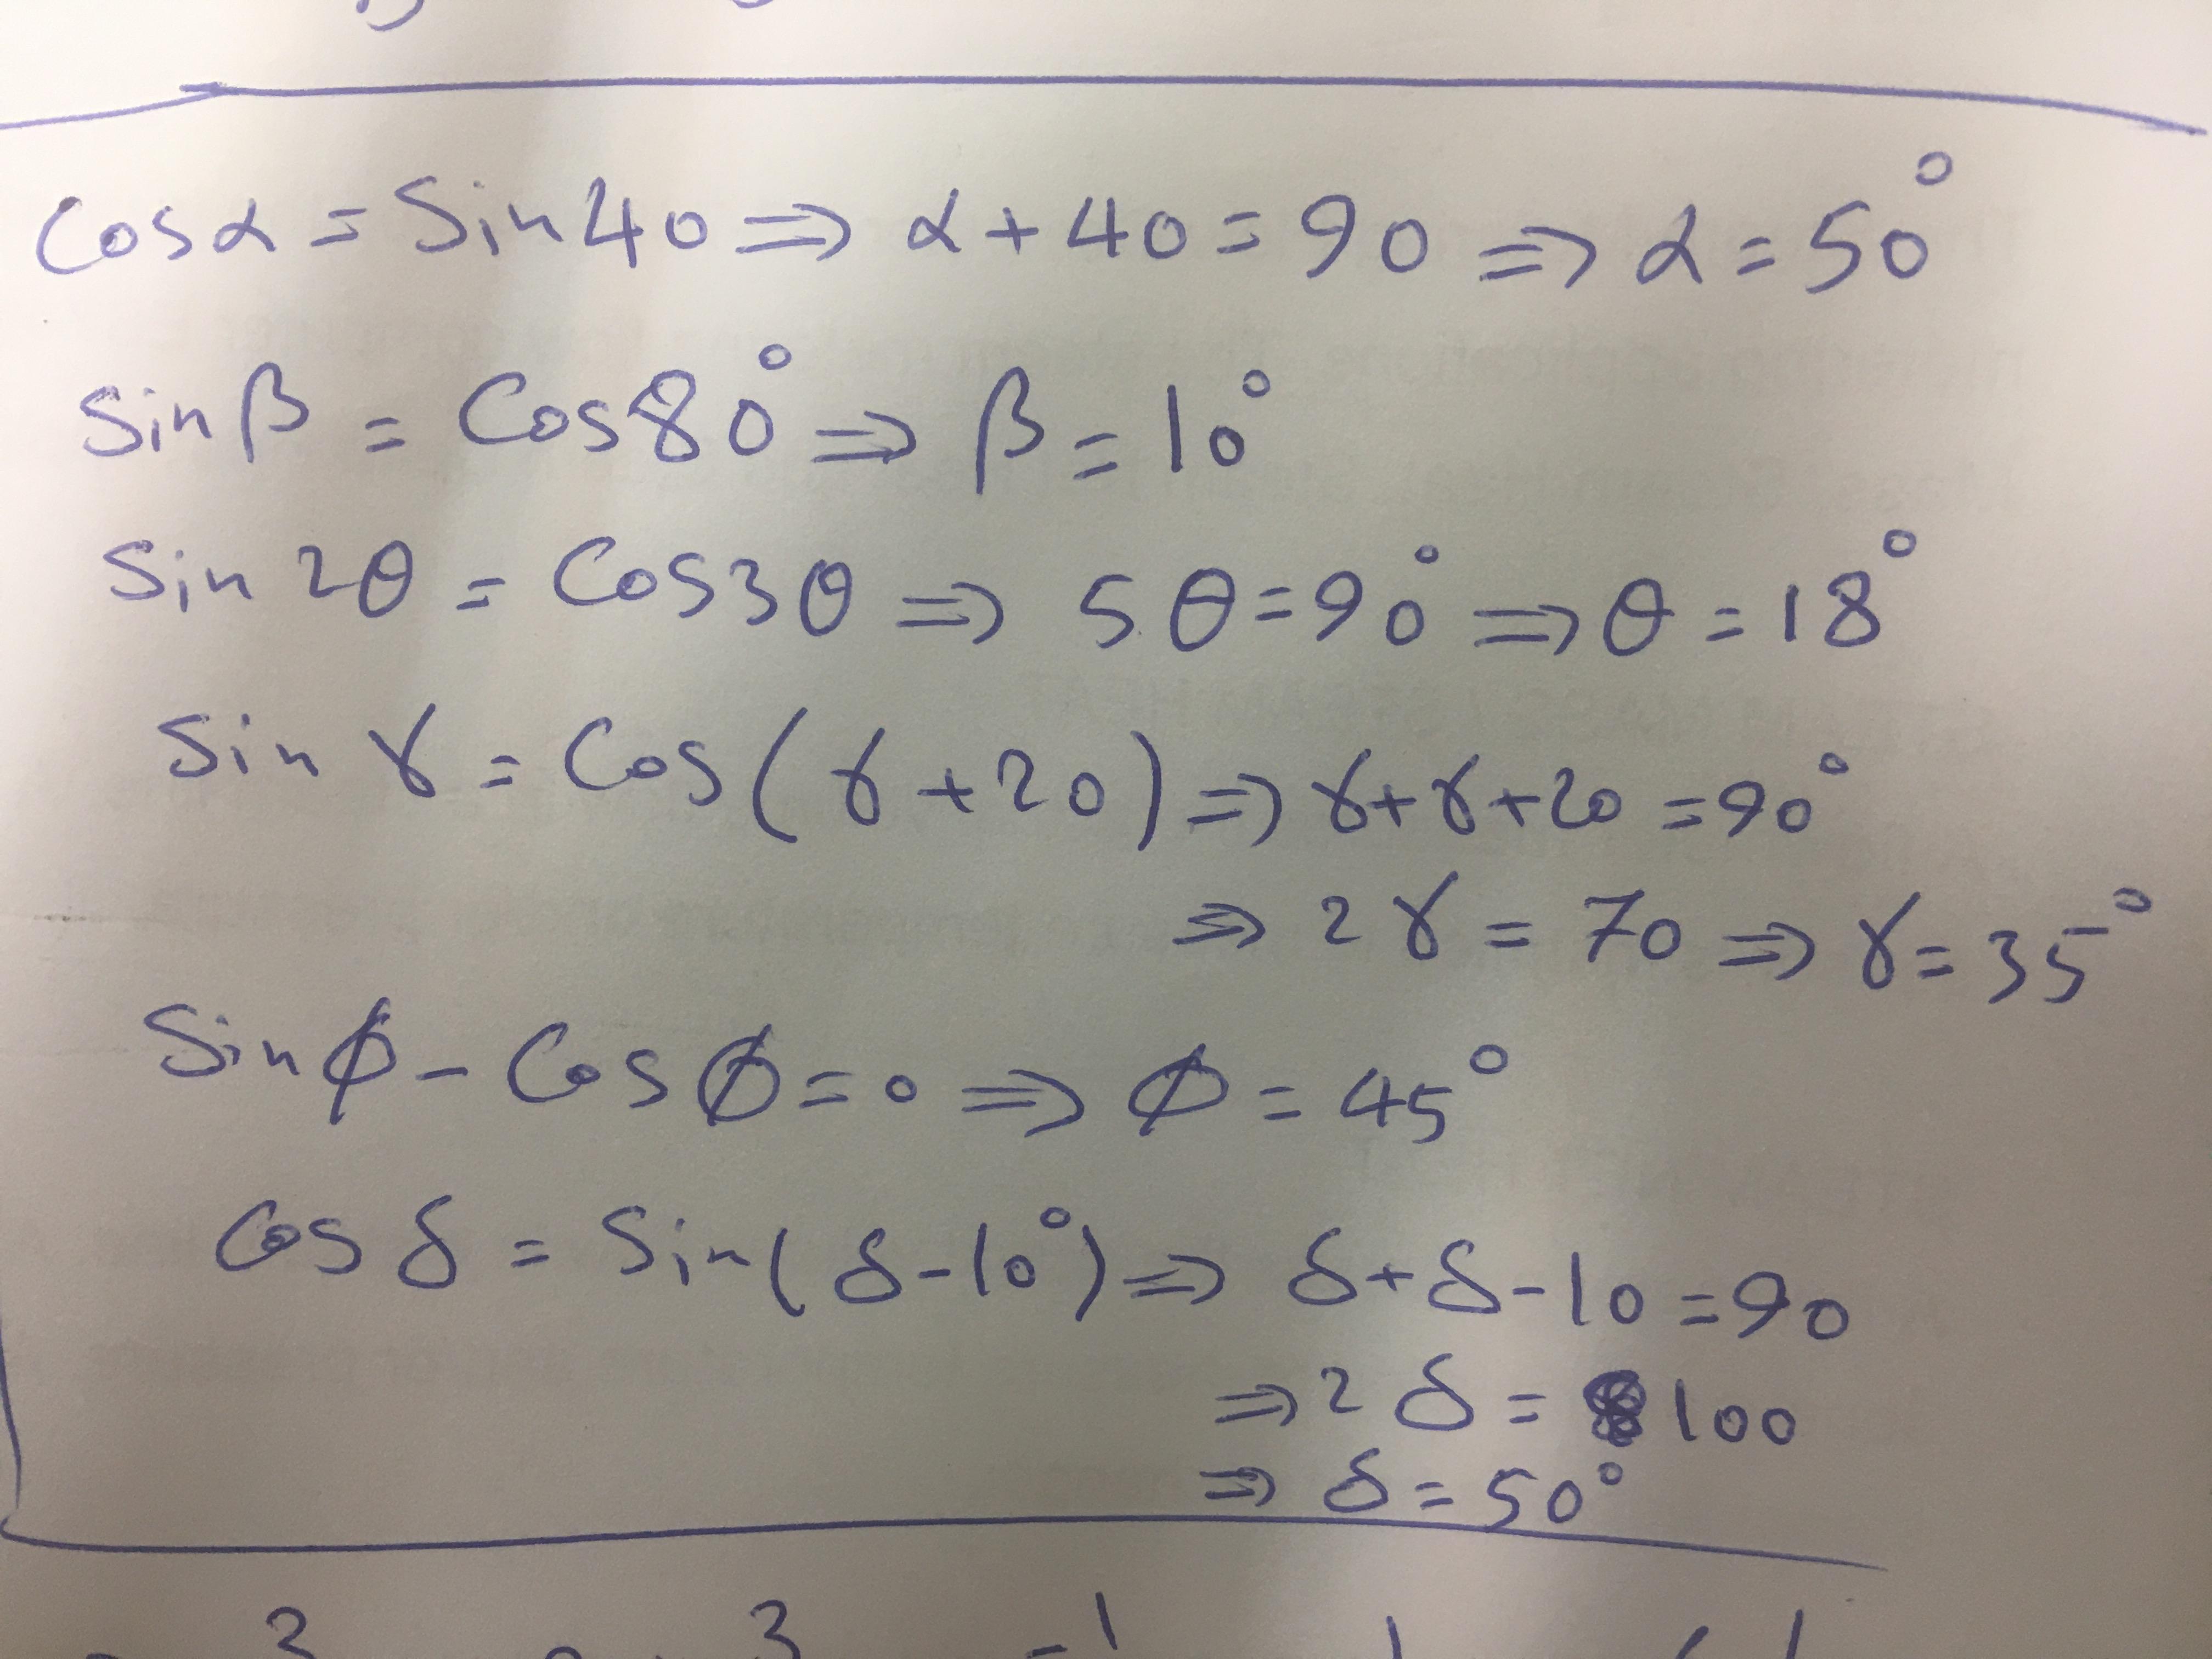 Cos α = Sin 40 ⇒ α + 40 = 90 ⇒ α = 50°
Sin β = Cos 80° ⇒ β = 10°
Sin 2θ = Cos 3θ ⇒ 5θ = 90° ⇒ θ = 18°
Sin γ = Cos (γ + 20) ⇒ γ + γ + 20 = 90°
⇒ 2γ = 70 ⇒ γ = 35°
Sin ϕ - Cos ϕ = 0 ⇒ ϕ = 45°
Cos δ = Sin (δ - 10°) ⇒ δ + δ - 10 = 90
⇒ 2δ = 100
⇒ δ = 50°